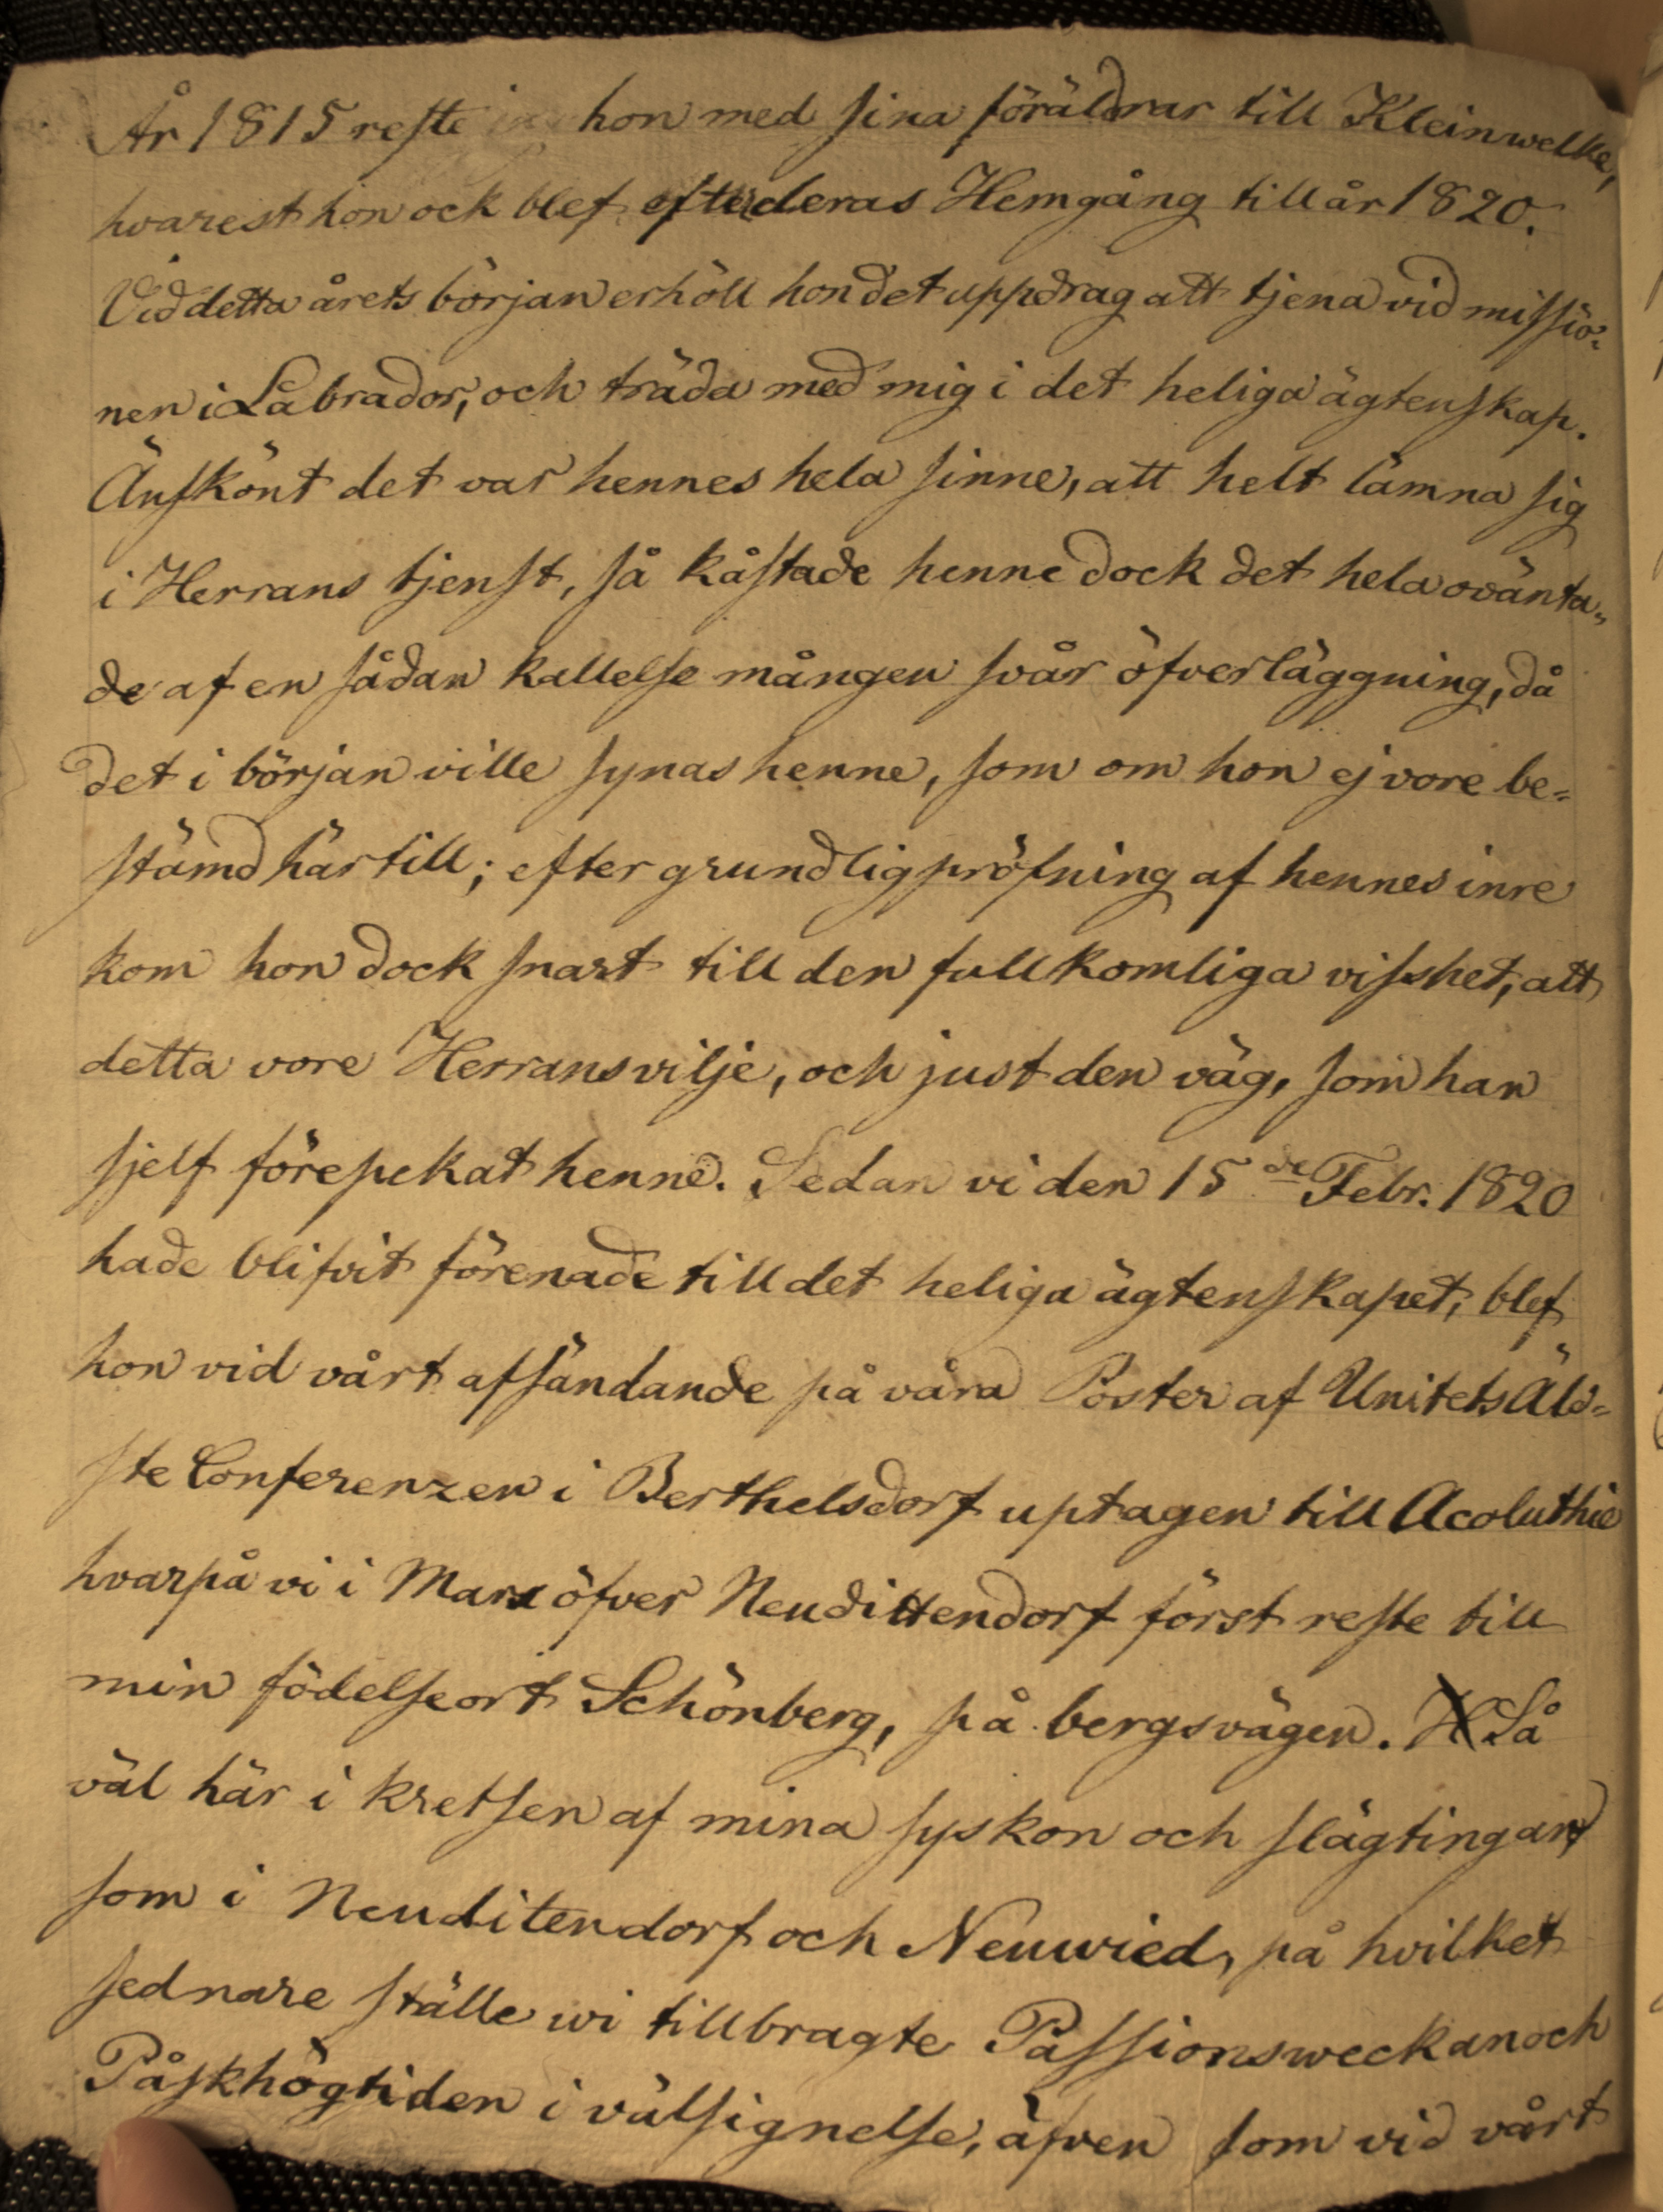 År 1815 reſte hon med ſina föräldrar till Kleinwelke,
hvarest hon ock blef efter deras Hemgång till år 1820.
Vid detta årets början erhöll hon det uppdrag att tjena vid miſſio=
nen i Labrador, och träda med mig i det heliga ägtenſkap.
Änſkönt det var hennes hela ſinne, att helt lämna ſig
i Herrans tjenſt, ſå kåſtade henne dock det hela ovänta=
de af en ſådan kallelſe mången ſvår öfverläggning, då
det i början ville ſynas henne, ſom om hon ej vore be=
ſtämd här till; efter grundlig pröfning af hennes inre
kom hon dock ſnart till den fullkomliga viſshet, att
detta vore Herrans vilje, och just den väg, ſom han
ſjelf förepekat henne. Sedan vi den 15de Febr. 1820
hade blifvit förenade till det heliga ägtenſkapet, blef
hon vid vårt afſändande på våra Poster af Unitets Äld=
ſte Conferenzen i Berthelsdorf uptagen till Acoluthie
hvarpå vi i Mars öfver Neudittendorf först reſte till
min födelſeort Schönberg, på bergsvägen. H Så
väl här i kretſen af mina ſyskon och ſlägtingar
ſom i Neuditendorf och Neuwied, på hvilket
ſednare ſtälle wi tillbragte Paſſionsweckan och
Påſkhögtiden i välſignelſe, äfven ſom vid vårt